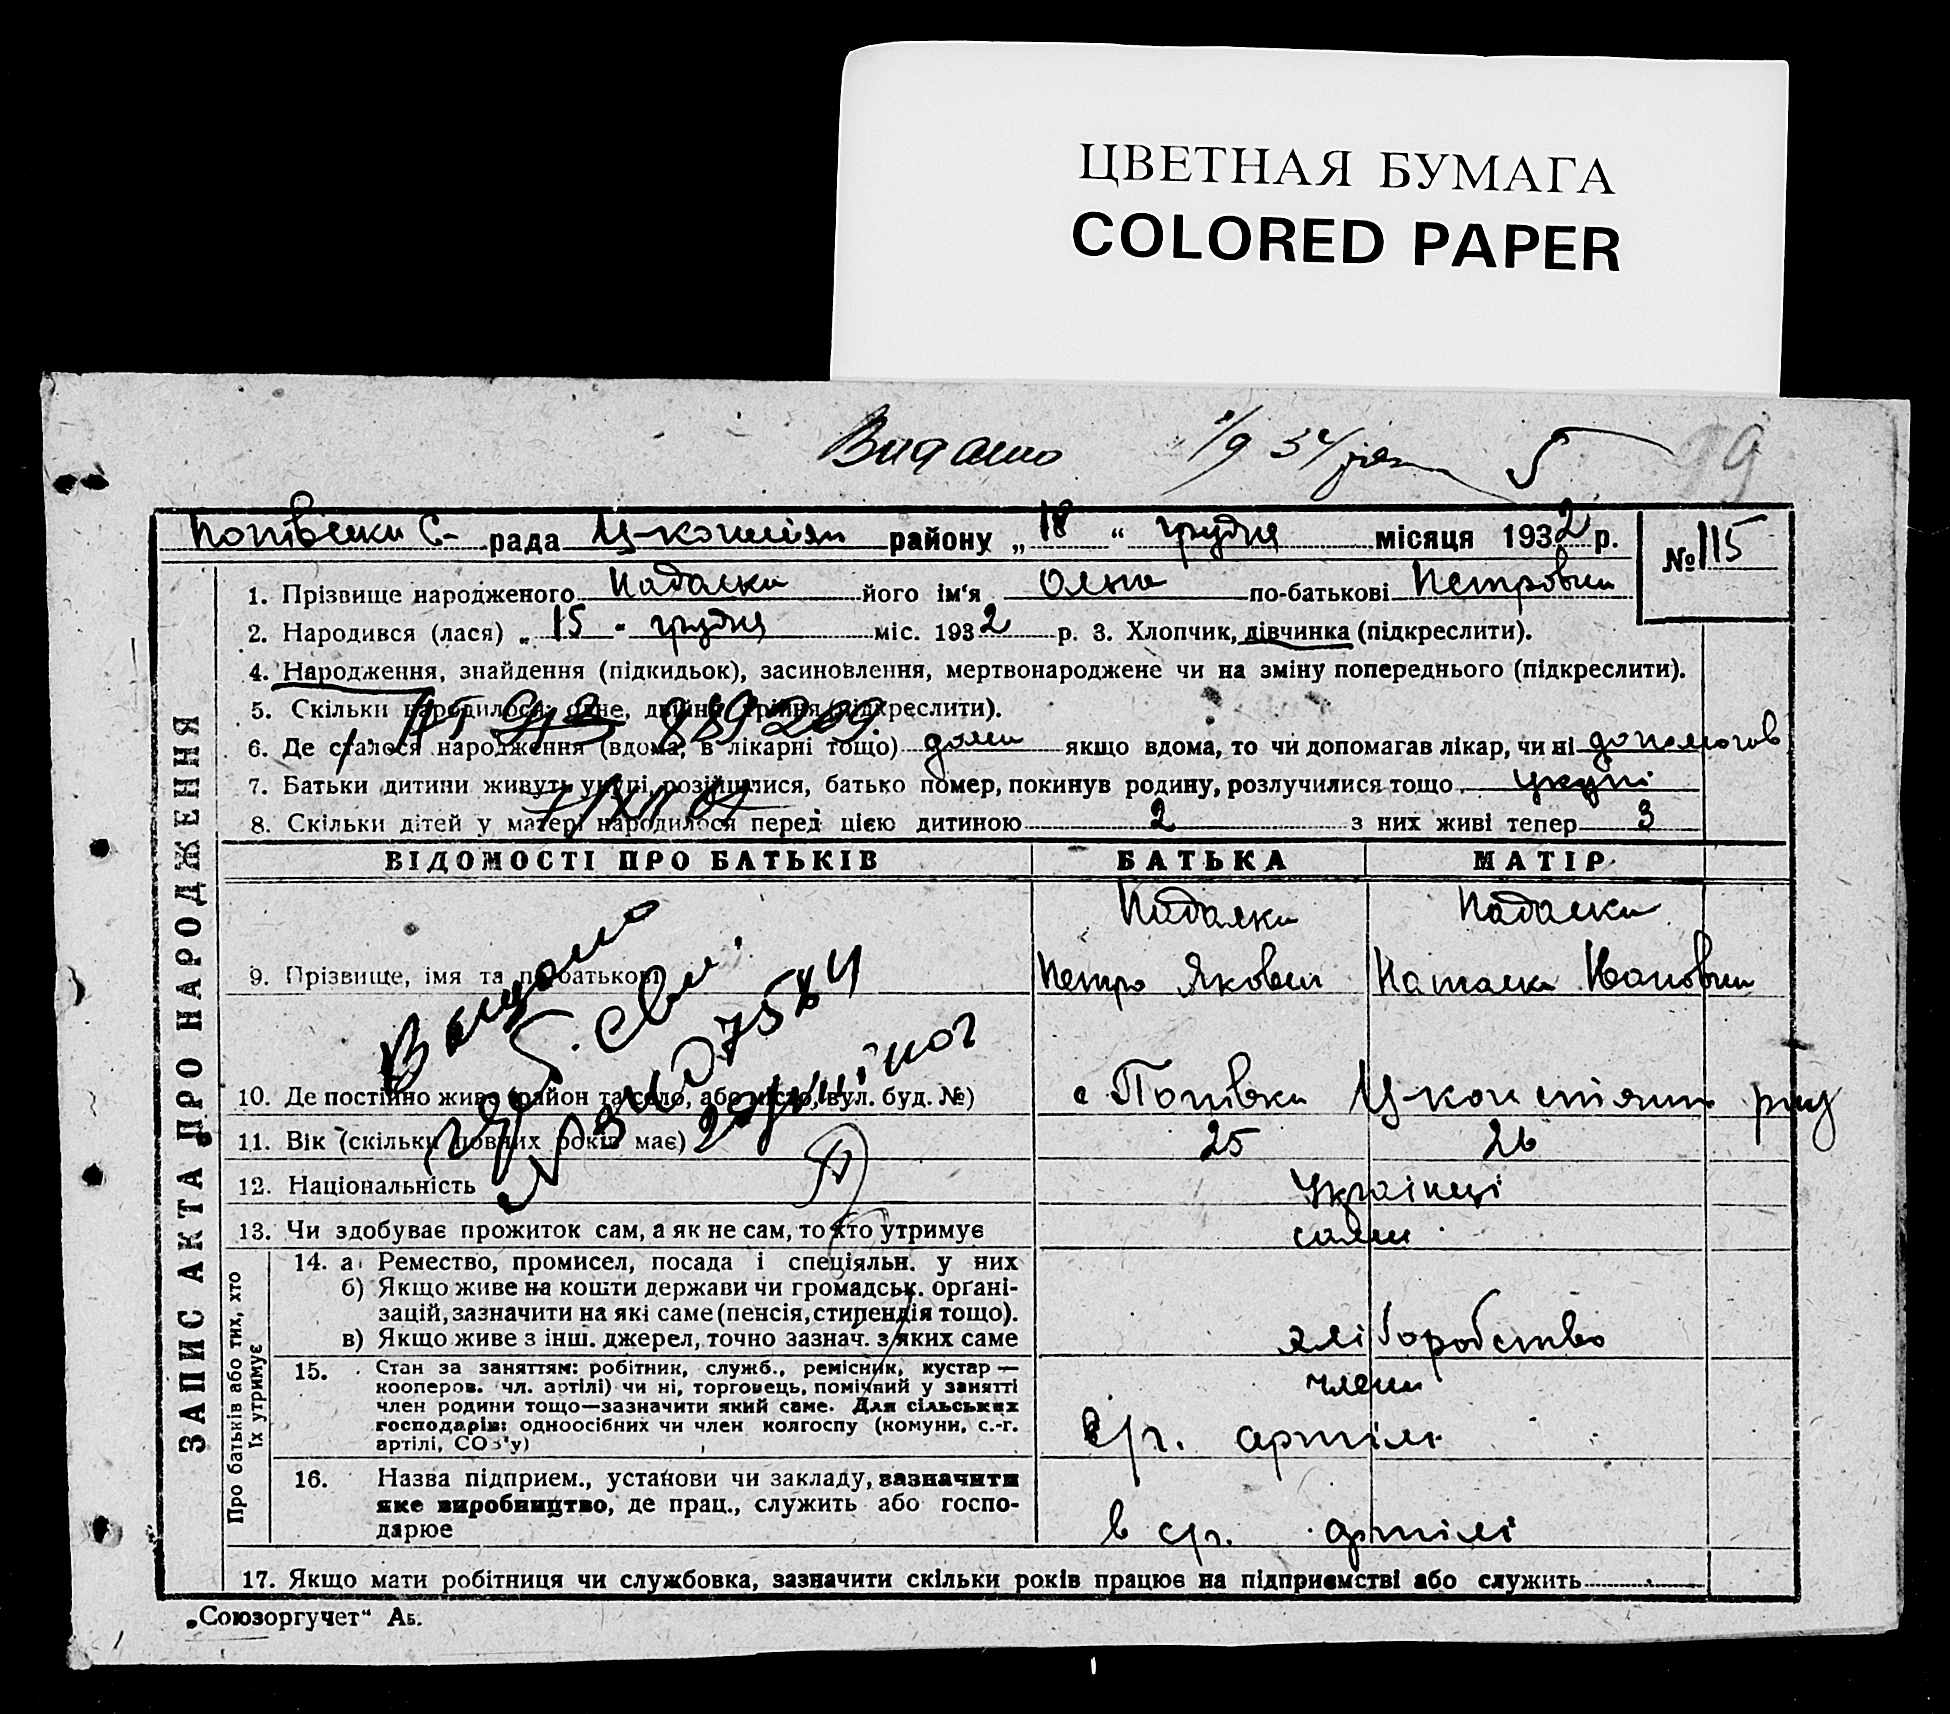 ЦВЕТНАЯ БУМАГА
COLORED PAPER
Видано 1/9 34
99
Попівська С- рада Ц-кониській району „ 18 “ грудня місяця 1932 р. № 115
ЗАПИС АКТА ПРО НАРОДЖЕННЯ
1. Прізвище народженого Падалки його ім‘я Ольга по-батькові Петровна
2. Народився (лася) „ 15 “ грудня міс. 1932 р. 3. Хлопчик, дівчинка (підкреслити).
4. Народження, знайдення (підкидьок), засиновлення, мертвонароджене чи на зміну попереднього (підкреслити).
5. Скільки народилося: одне, двійня, трійня (підкреслити).
6. Де сталося народження (вдома, в лікарні тощо) дома якщо вдома, то чи допомагав лікар, чи ні допомогав
7. Батьки дитини живуть укупі, розійшлися, батько помер, покинув родину, розлучилися тощо укупі
8. Скільки дітей у матері народилося перед цією дитиною 2 з них живі тепер 3
ВІДОМОСТІ ПРО БАТЬКІВ БАТЬКА МАТІР
Падалки Падалки
9. Прізвище, імя та по батькові Петро Якович Наталка Ивановна
10. Де постійно живе (район та село, або місто, вул. буд. №) с Попівки
11. Вік (скільки повних років має) 25 26
12. Національність Українці
13. Чи здобуває прожиток сам, а як не сам, то хто утримує сами
Про батьків або тих, хто їх утримує
14. а) Ремество, промисел, посада і спеціяльн. у них
б) Якщо живе на кошти держави чи громадськ. органі-
зацій, зазначити на які саме (пенсія, стипендія тощо).
в) Якщо живе з інш. джерел, точно зазнач. з яких саме хліборобство
15. Стан за заняттям: робітник, служб., ремісник, кустар —
кооперов. чл. артілі) чи ні, торговець, помічний у занятті
член родини тощо—зазначити який саме. Для сільських
господарів: одноосібних чи член колгоспу (комуни, с.-г.
артілі, СОЗ'у)
члени
с/г. артілі
16. Назва підприєм., установи чи закладу, зазначити
яке виробництво, де прац., служить або госпо-
дарює
в с/г. артілі
17. Якщо мати робітниця чи службовка, зазначити скільки років працює на підприємстві або служить
„Союзоргучет“ Аб.